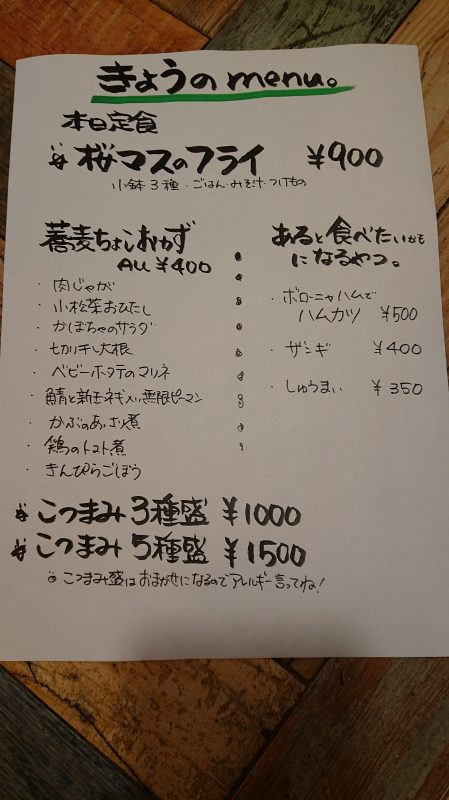 きょうのmenu。
本日定食
桜マスのフライ ¥900
小鉢3種・ごはん・みそ汁・つけもの
蕎麦ちょこおかず
ALL ¥400
・肉じゃが
・小松菜おひたし
・かぼちゃのサラダ
・切り干し大根
・ベビーホタテのマリネ
・鯖と新玉ネギ入り無限ピーマン
・かぶのあっさり煮
・鶏のトマト煮
・きんぴらごぼう
あると食べたいかも
になるやつ。
・ボローニャハムで
ハムカツ ¥500
・ザンギ ¥400
・しゅうまい ¥350
こつまみ3種盛 ¥1000
こつまみ5種盛 ¥1500
こつまみ盛はおまかせになるのでアレルギー言ってね!